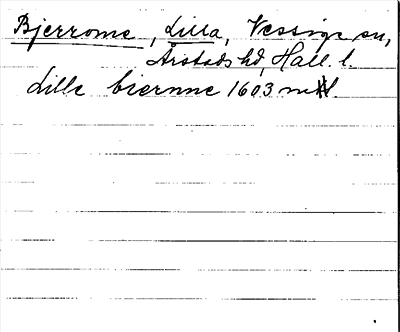 Bjerrome, Lilla, Vessige sn,
Årstads hd, Hall. l.
Lille biernne 1603